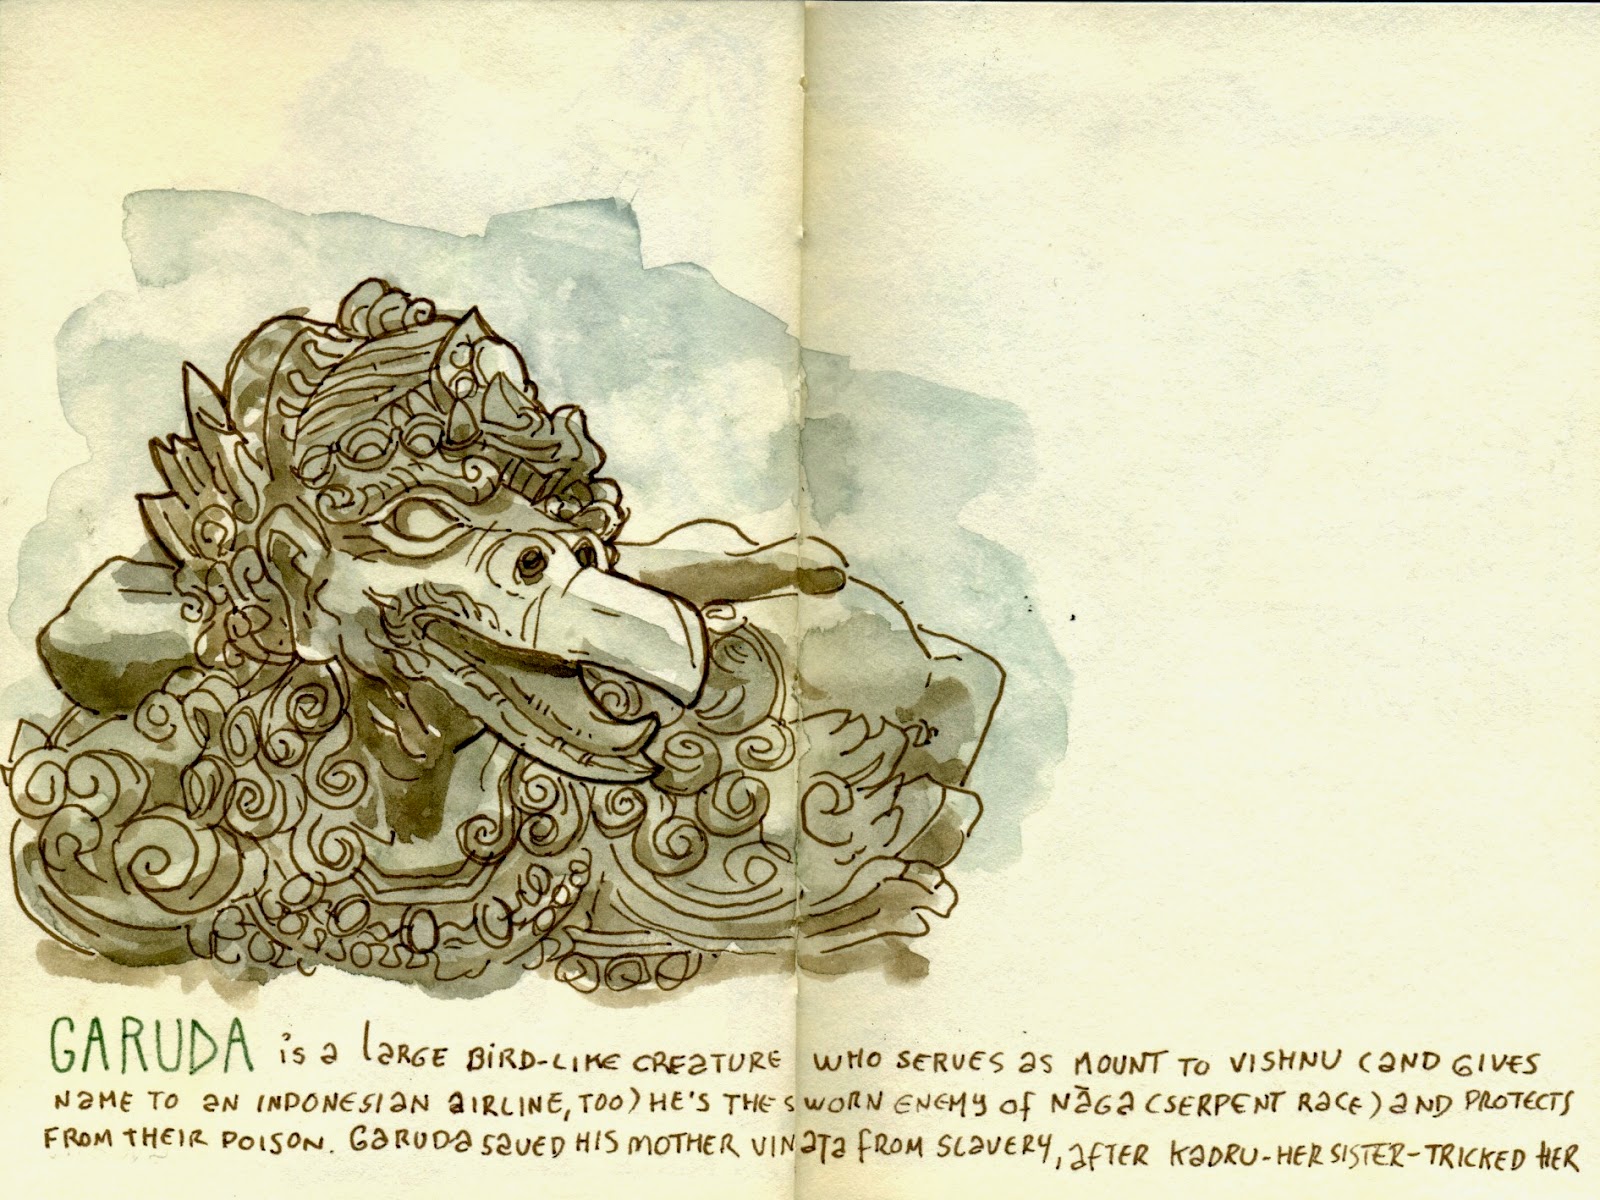 GARUDA is a large BIRD-LIKE CREATURE WHO SERVES as MOUNT TO VISHNU (AND GIVES
NAME TO AN INDONESIAN AIRLINE, TOO) HE'S THE SWORN ENEMY of NĀGA (SERPENT RACE) AND PROTECTS
FROM THEIR POISON. GARUDA SAVED HIS MOTHER VINATA FROM SLAVERY, AFTER KADRU-HER SISTER-TRICKED HER